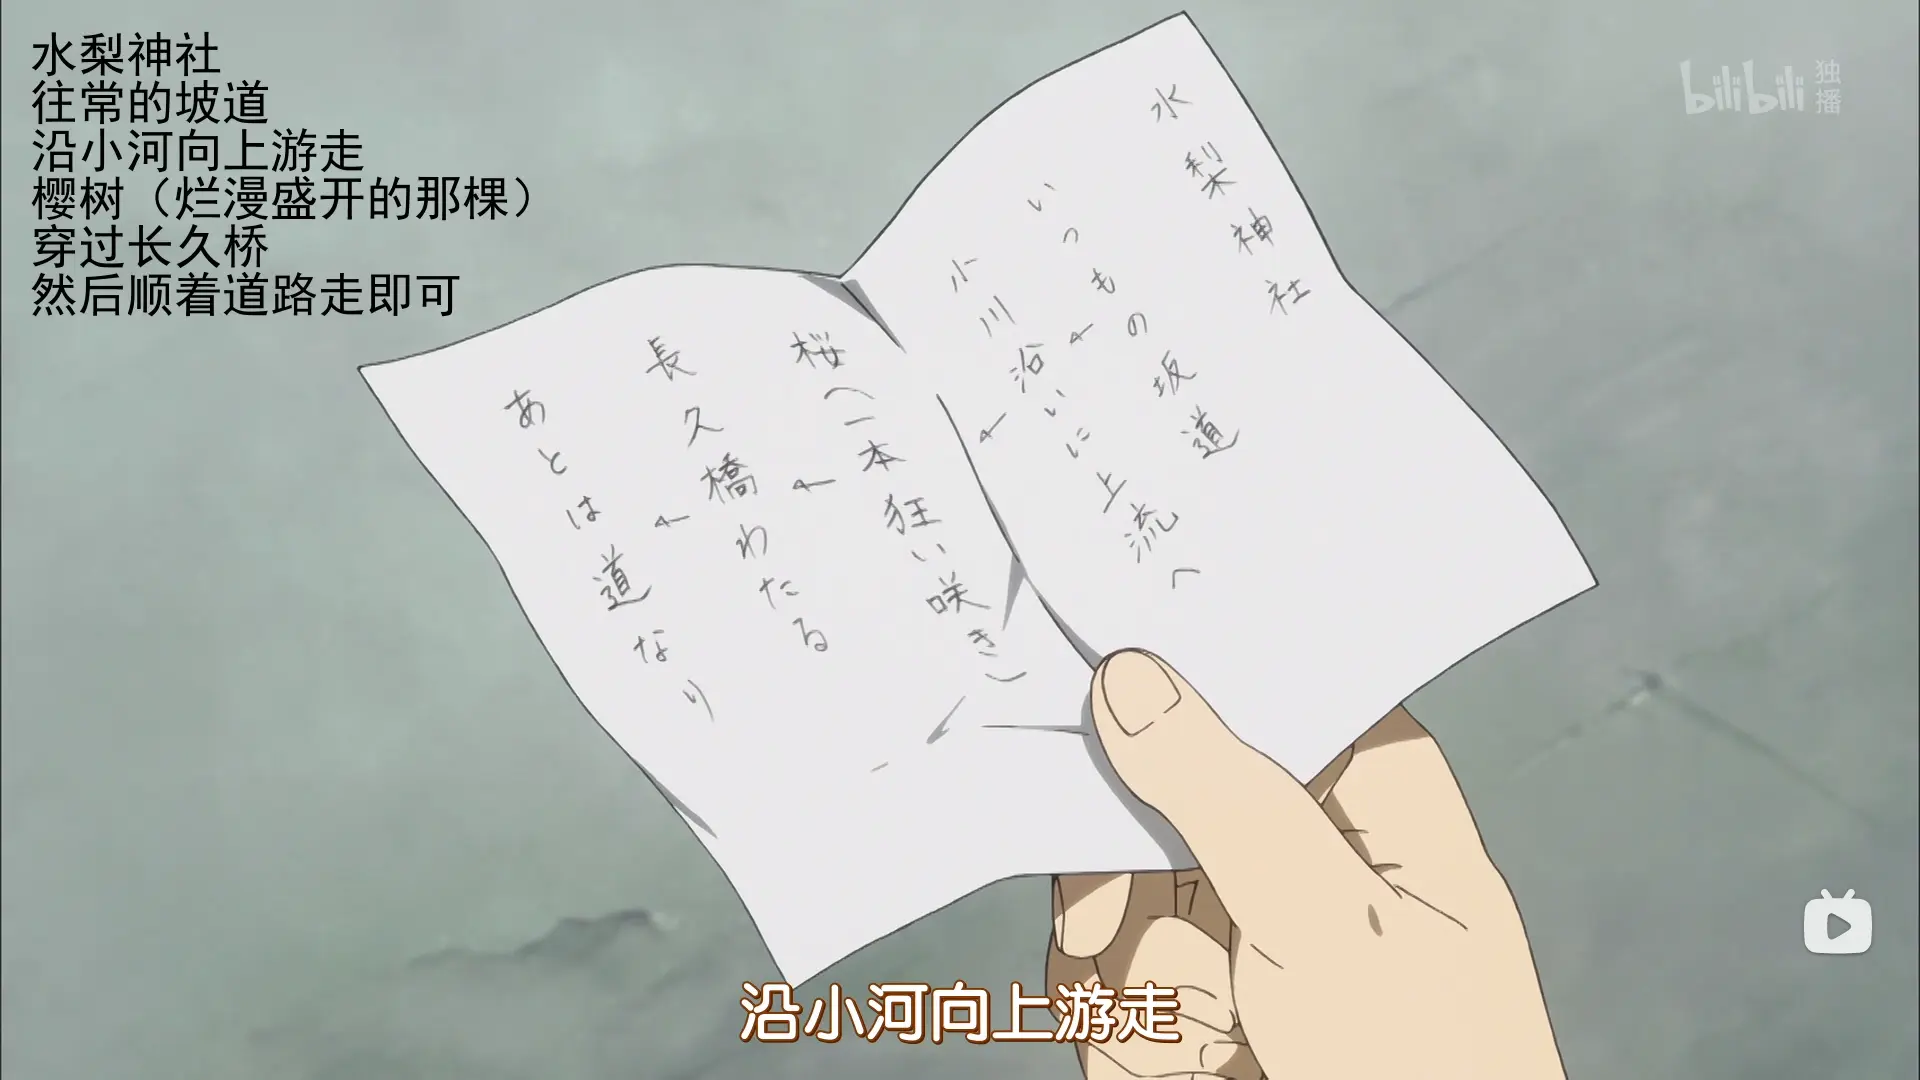 水梨神社
往常的坡道
沿小河向上游走
樱树（烂漫盛开的那棵）
穿过长久桥
然后顺着道路走即可
bilibili 独播
水梨神社
いつもの坂道
←
小川沿いに上流へ
←
桜（一本狂い咲き）
←
長久橋わたる
←
あとは道なり
沿小河向上游走